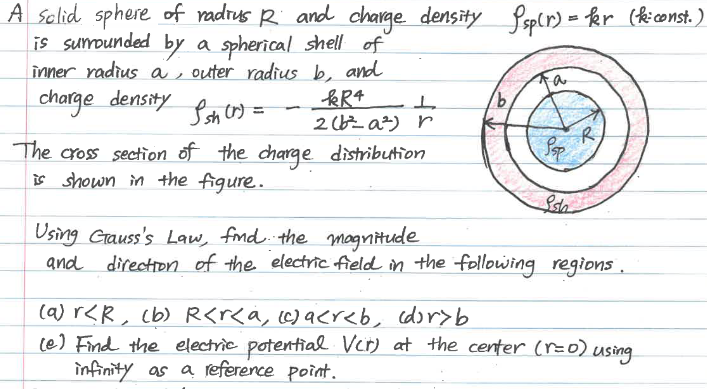 A solid sphere of radius R and charge density ρsp(r) = kr (k: const.)
is surrounded by a spherical shell of
inner radius a, outer radius b, and
charge density ρsh(r) = - kR⁴ / 2(b²-a²) 1/r
The cross section of the charge distribution
is shown in the figure.
a
b
R
ρsp
ρsh
Using Gauss's Law, find the magnitude
and direction of the electric field in the following regions.
(a) r<R, (b) R<r<a, (c) a<r<b, (d) r>b
(e) Find the electric potential V(r) at the center (r=0) using
infinity as a reference point.